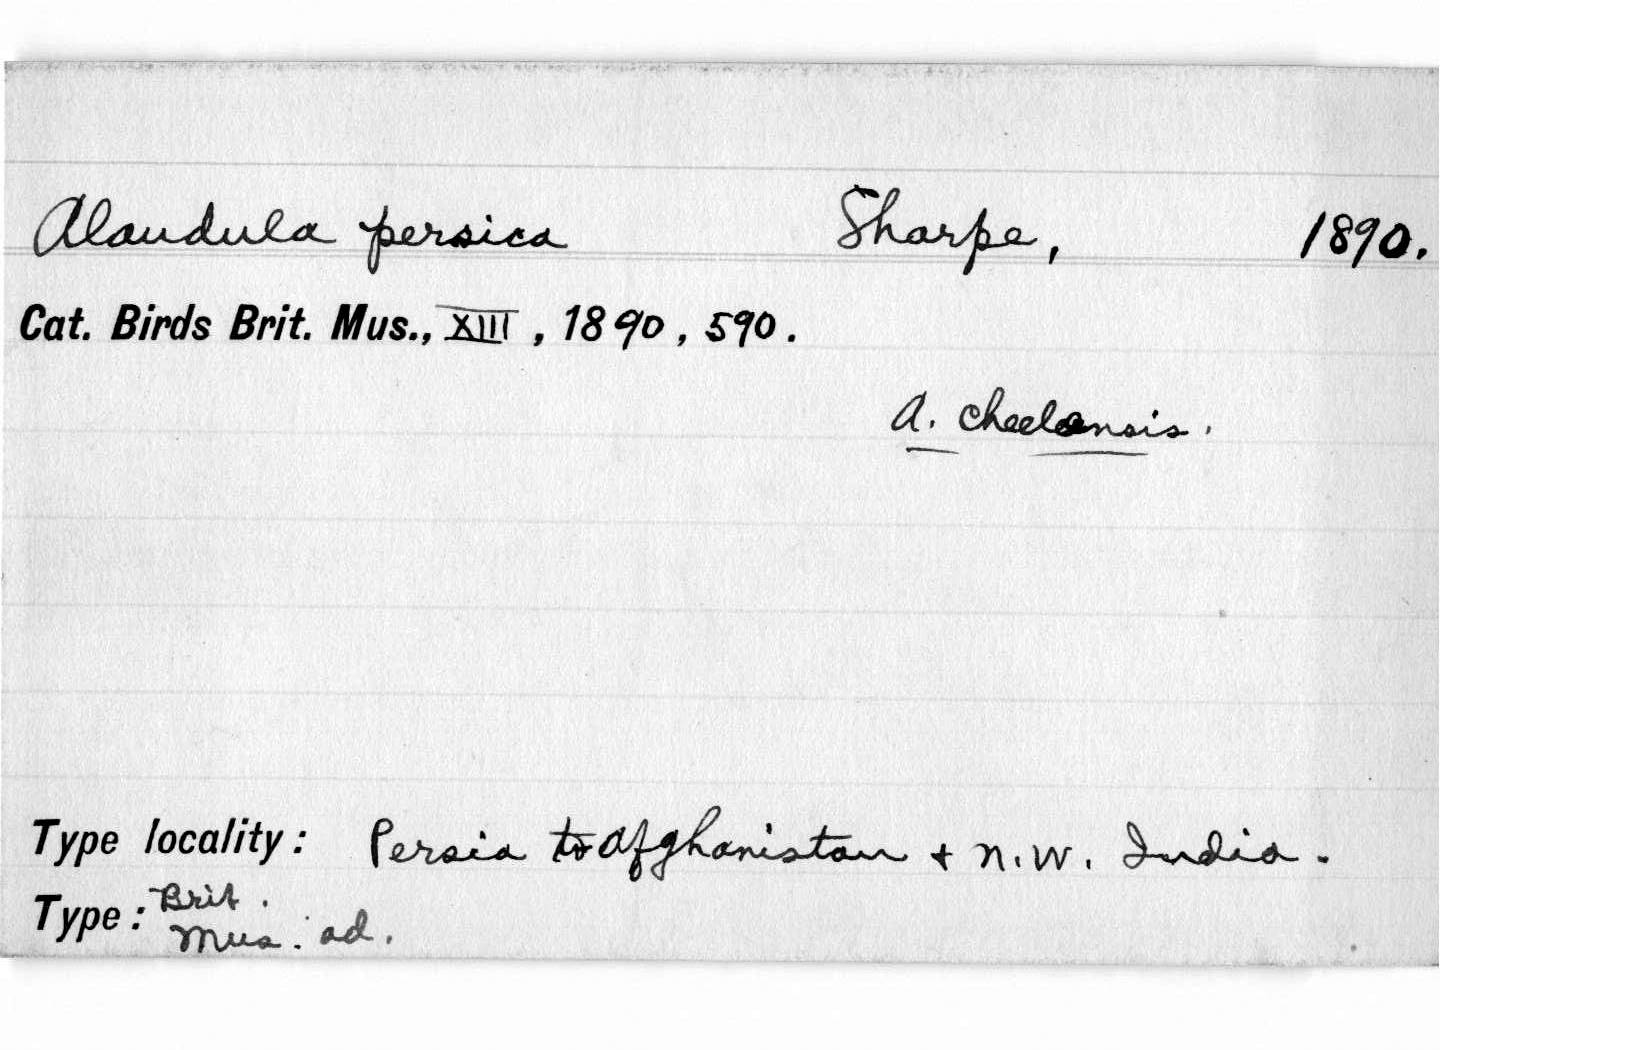 Alaudula persica Sharpe, 1890.
Cat. Birds Brit. Mus., XIII, 1890, 590.
A. cheelensis.
Type locality: Persia to Afghanistan + N.W. India.
Type: Brit.
Mus. ad.